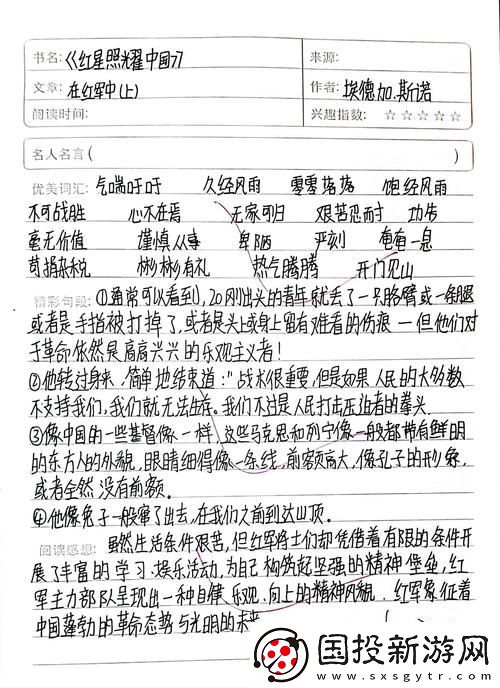 书名:《红星照耀中国》
来源:
文章: 在红军中(上)
作者: 埃德加.斯诺
阅读时间:
兴趣指数: ☆☆☆☆☆
名人名言( )
优美词汇: 气喘吁吁 久经风雨 零零落落 饱经风雨
不可战胜 心不在焉 无家可归 艰苦忍耐 功伟
毫无价值 谨慎从事 卑陋 严刻 奄奄一息
苛捐杂税 彬彬有礼 热气腾腾 开门见山
精彩句段: ①通常可以看到,20刚出头的青年就丢了一只胳臂或一条腿
或者是手指被打掉了,或者是头上或身上留有难看的伤痕一但他们对
于革命依然是高高兴兴的乐观主义者!
②他转过身来,简单地结束道:"战术很重要,但是如果人民的大多数
不支持我们,我们就无法生存。我们不过是人民打击压迫者的拳头.
③像中国的一些基督像一样,这些马克思和列宁像一般都带有鲜明
的东方人的外貌,眼睛细得像一条线,前额高大,像孔子的形象,
或者全然没有前额。
④他像兔子一般窜了出去,在我们之前到达山顶。
阅读感想: 虽然生活条件艰苦,但红军将士们却凭借着有限的条件开
展了丰富的学习.娱乐活动,为自己构筑起坚强的精神堡垒,红
军主力部队呈现出一种自律、乐观、向上的精神风貌.红军象征着
中国蓬勃的革命态势与光明的未来
国投新游网
www.sxsgytr.com